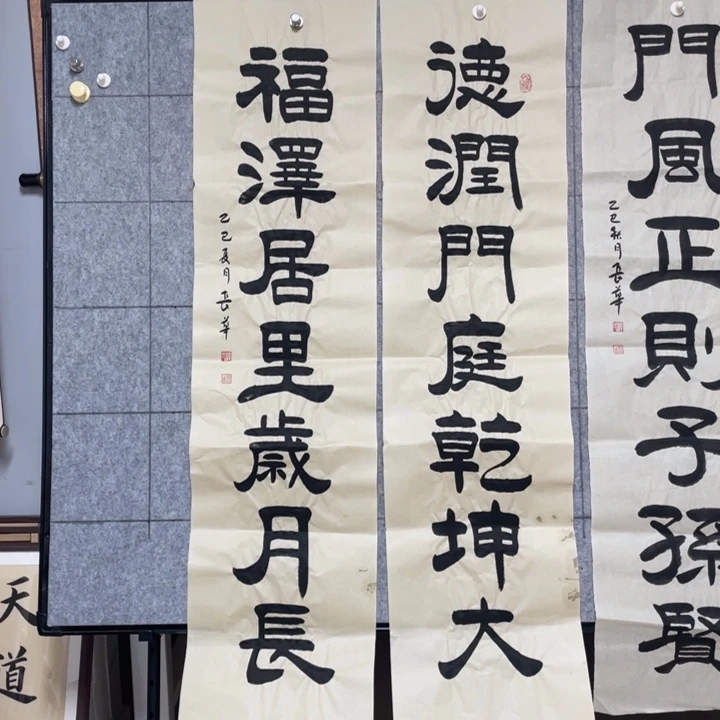 門風正則子孫賢
乙巳秋月長華
德潤門庭乾坤大
福澤居里歲月長
乙巳夏月長華
天道